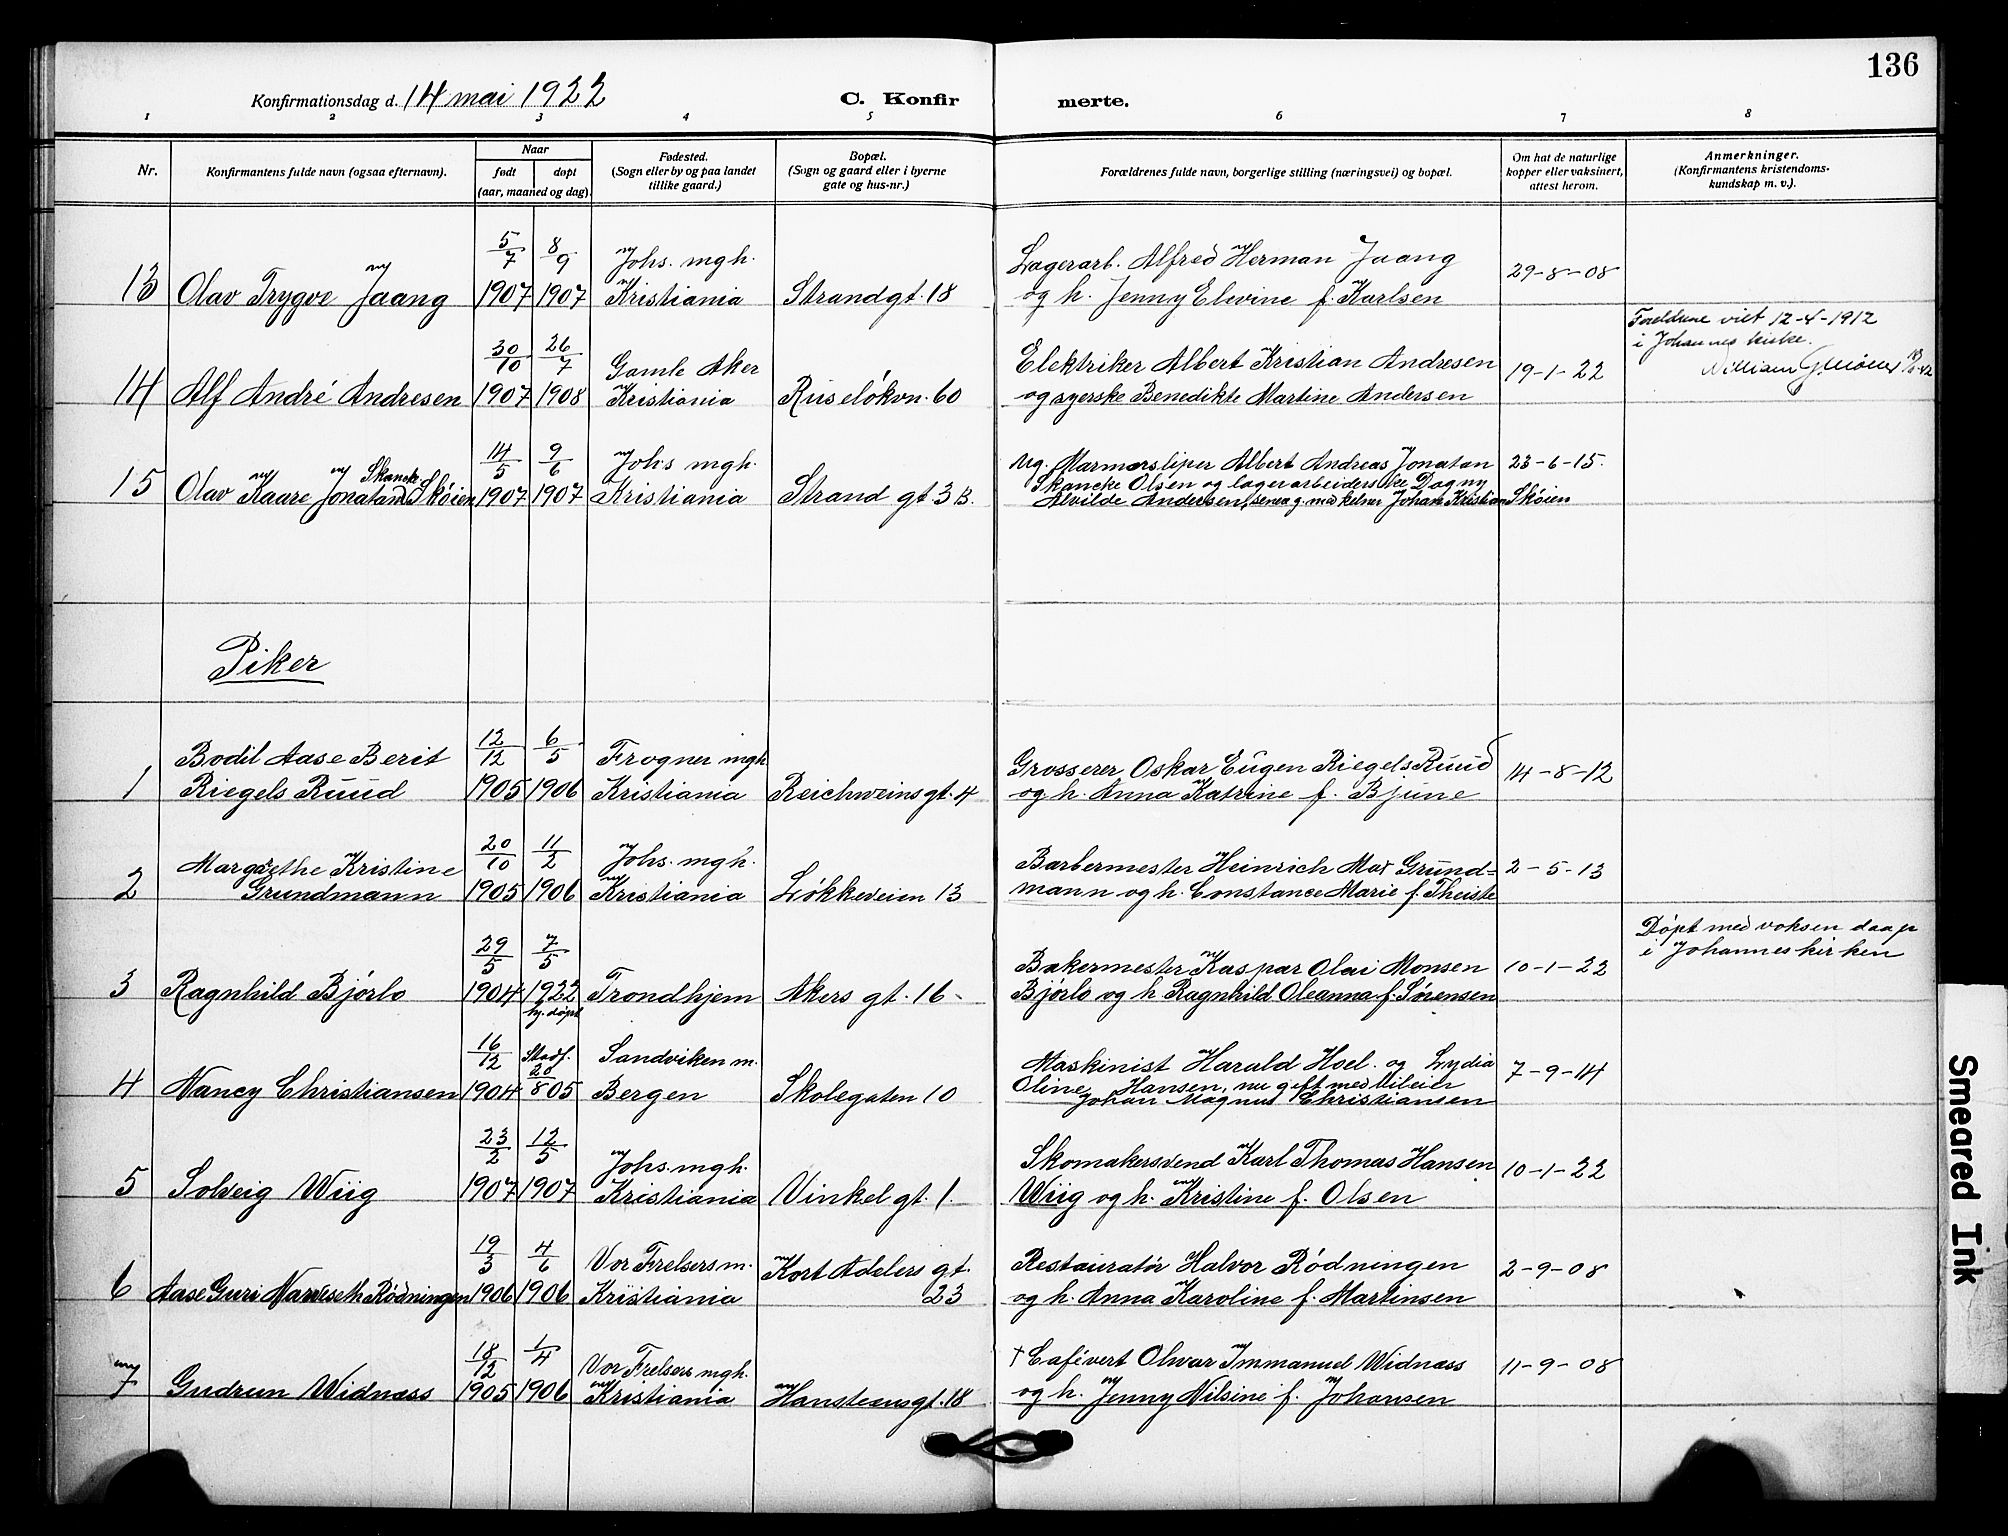 136
Konfirmationsdag d. 14 mai 1922
C. Konfirmerte.
1 2 3 4 5 6 7 8
Nr.
Konfirmantens fulde navn (ogsaa efternavn).
Naar
født
døpt
(aar, maaned og dag)
Fødested.
(Sogn eller by og paa landet
tillike gaard.)
Bopæl.
(Sogn og gaard eller i byerne
gate og hus-nr.)
Forældrenes fulde navn, borgerlige stilling (næringsvei) og bopæl.
Om hat de naturlige
kopper eller vaksinert,
attest herom.
Anmerkninger.
(Konfirmantens kristendoms-
kundskap m. v.).
13 Olav Trygve Jaang
5/7 1907
8/9 1907
Johs. mgh.
Kristiania
Strandgt. 18
Lagerarb. Alfred Herman Jaang
og h. Jenny Elevine f. Karlsen
29-8-08
14 Alf André Andresen
30/10 1907
26/7 1908
Gamle Aker
Kristiania
Ruseløkvn. 60
Elektriker Albert Kristian Andresen
og syerske Benedikte Martine Andersen
19-1-22
Foreldrene viet 12-4-1912
i Johannes kirke.
15 Olav Kaare Jonatan Skancke Skøien
14/5 1907
9/6 1907
Johs mgh.
Kristiania
Strand gt 3 B.
Ug. Marmorsliper Albert Andreas Jonatan
Skancke Olsen og lagerarbeiderske Dagny
Alvilde Andersen, senea g. med kelner Johan Kristian Skøien
23-6-15.
Piker
1 Bodil Aase Berit
Riegels Ruud
12/12 1905
6/5 1906
Frogner mgh
Kristiania
Reichweinsgt. 4
Grosserer Oskar Eugen Riegels Ruud
og h. Anna Katrine f. Bjune
14-8-12
2 Margrethe Kristine
Grundmann
20/10 1905
11/2 1906
Johs. mgh.
Kristiania
Løkkeveien 13
Barbermester Heinrich Max Grund=
mann og h. Constance Marie f. Theiste
2-5-13
3 Ragnhild Bjørlo
29/5 1904
7/5 1922
hj. døpt
Trondhjem
Akers gt. 16
Bakermester Kaspar Olai Monsen
Bjørlo og h Ragnhild Oleanna f. Sørensen
10-1-22
Døpt med voksen daap
i Johanneskirken
4 Nancy Christiansen
16/12 1904
Stadf.
20/8 05
Sandviken m.
Bergen
Skolegaten 10
Maskinist Harald Hoel og Lydia
Oline Hansen, nu gift med
Johan Magnus Christiansen
7-9-14
5 Solveig Wiig
23/2 1907
12/5 1907
Johs. mgh.
Kristiania
Vinkel gt. 1.
Skomakersvend Karl Thomas Hansen
Wiig og h. Kristine f. Olsen
10-1-22
6 Aase Guri Narveseth Rødningen
19/3 1906
4/6 1906
Vor Frelsers m.
Kristiania
Kort Adelers gt.
23
Restauratør Halvor Rødningen
og h. Anna Karoline f. Martinsen
2-9-08
7 Gudrun Widnæss
18/12 1905
1/4 1906
Vor Frelsers mgh.
Kristiania
Hansteensgt. 18
† Cafévert Olwar Immanuel Widnæss
og h. Jenny Nilsine f. Johansen
11-9-08
Smeared Ink